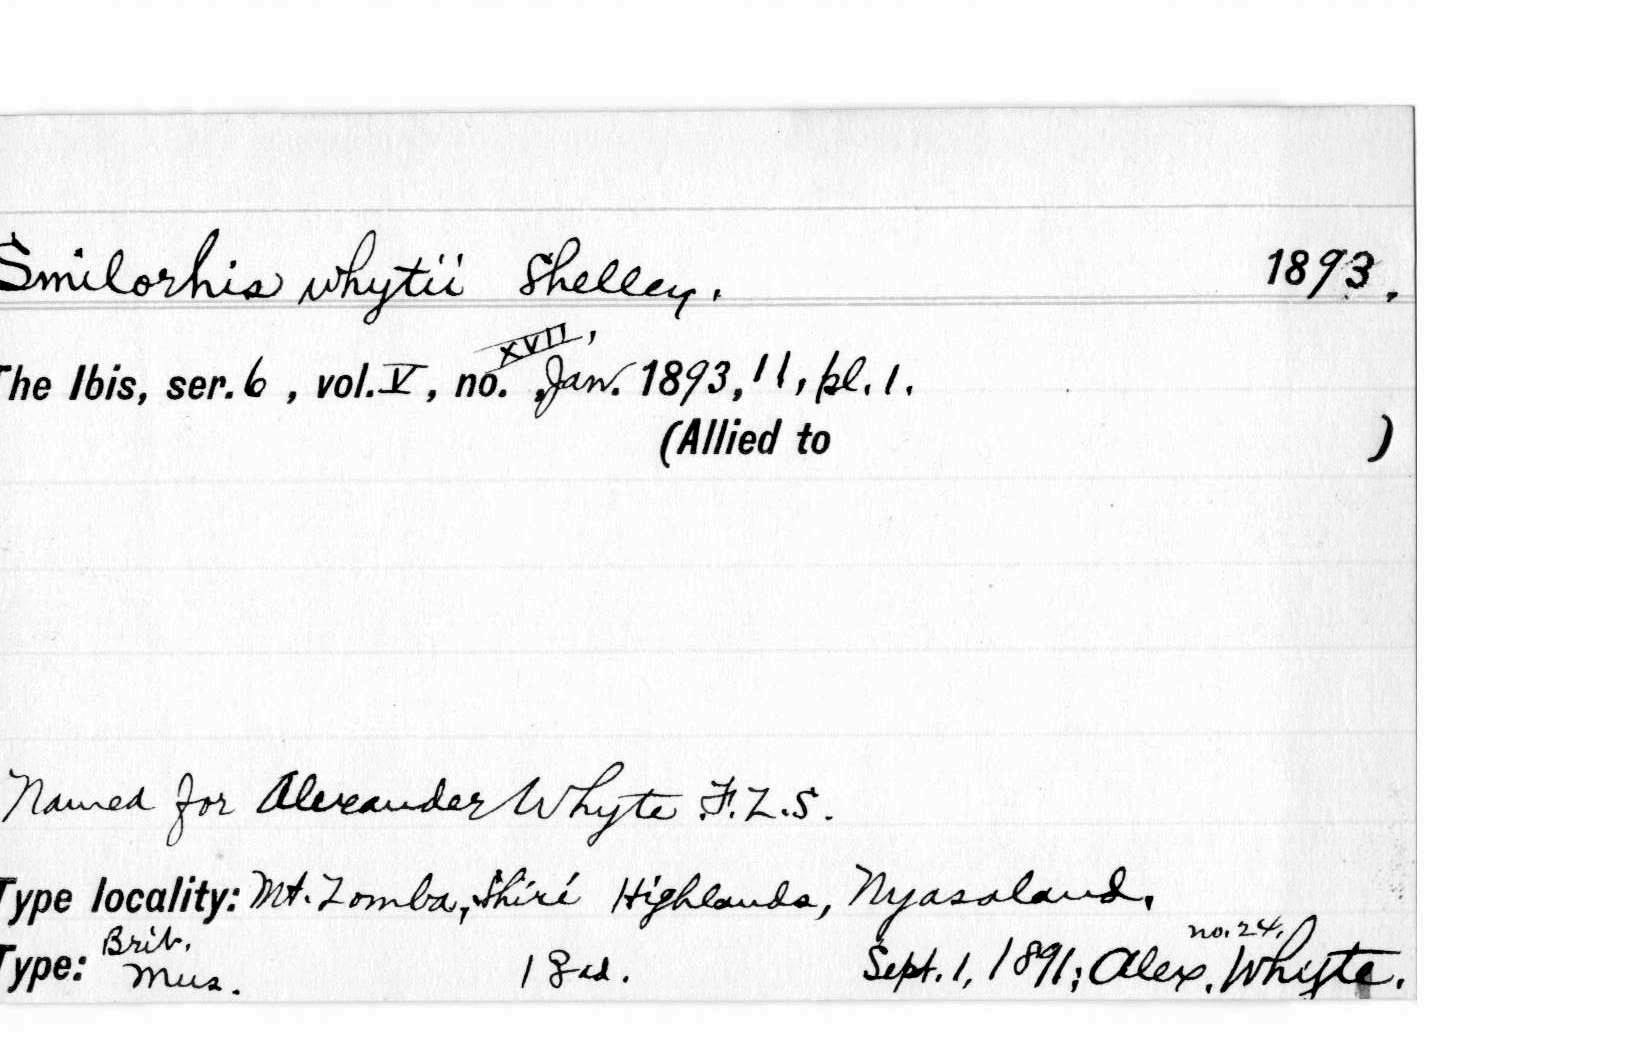 Smilorhis whytii Shelley. 1893.
The Ibis, ser. 6, vol. V, no. XVII, Jan. 1893, 11, pl. 1.
(Allied to )
Named for Alexander Whyte F.L.S.
Type locality: Mt. Zomba, Shiré Highlands, Nyasaland.
Type: Brit. Mus. 1 ad. Sept. 1, 1891; no. 24. Alex. Whyte.